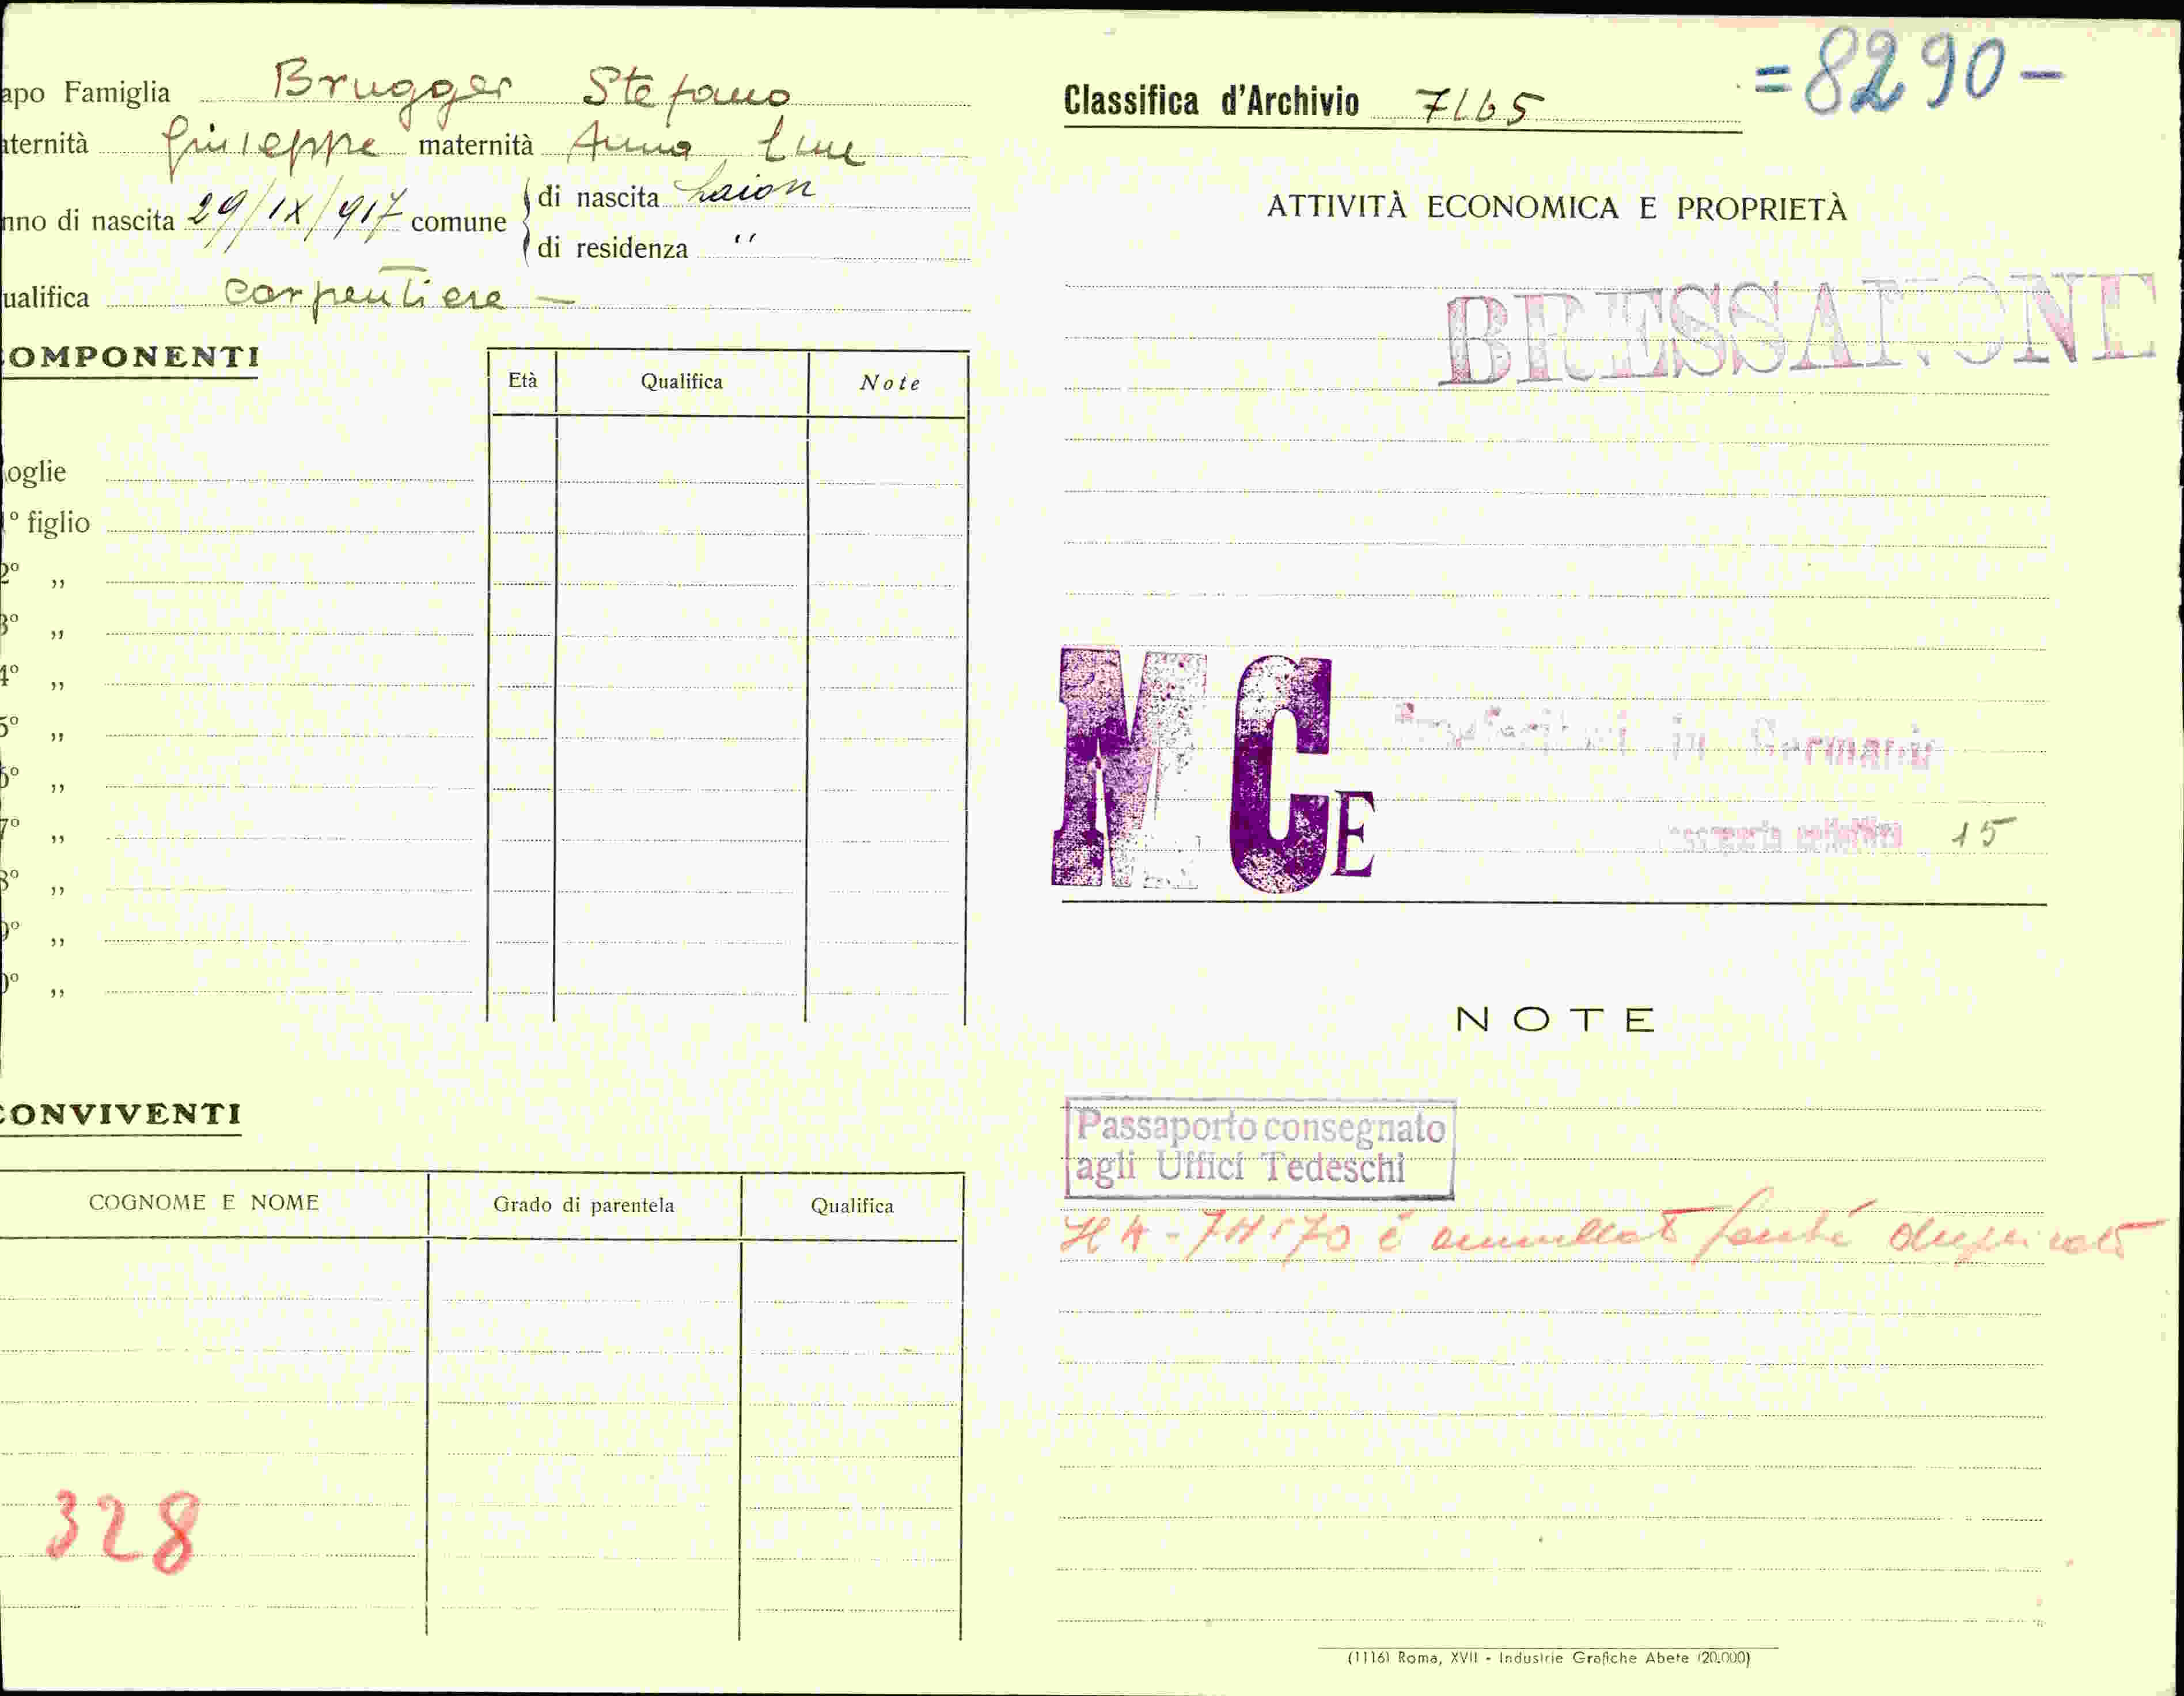 apo Famiglia Brugger Stefano
aternità Giuseppe maternità Anna
nno di nascita 29/IX/917 comune
di nascita Laion
di residenza "
ualifica carpentiere —
COMPONENTI
Età Qualifica Note
oglie
1° figlio
2° „
3° „
4° „
5° „
6° „
7° „
8° „
9° „
0° „
CONVIVENTI
COGNOME E NOME Grado di parentela Qualifica
328
= 8290 —
Classifica d'Archivio 7165
ATTIVITÀ ECONOMICA E PROPRIETÀ
BRESSANONE
M C E
in Germania
15
NOTE
Passaporto consegnato
agli Uffici Tedeschi
è duplicato
(1116) Roma, XVII - Industrie Grafiche Abete (20.000)